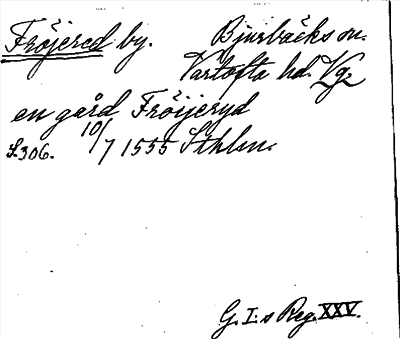 Fröjered by. Bjurbäcks sn.
Vartofta hd. Vg.
en gård Fröijeryd
S.306. 10/7 1555 Sthlm.
G. I:s Reg. XXV.